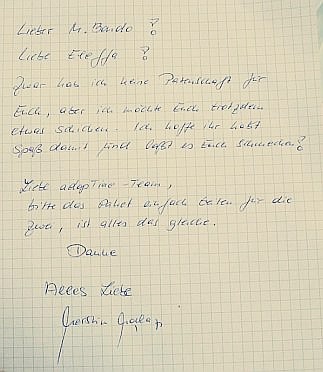 Lieber M. Bando !
Liebe
Zwar hab ich keine Patenschaft für
Euch, aber ich möchte Euch trotzdem
etwas schicken. Ich hoffe ihr habt
Spaß damit und laßt es Euch schmecken!
Liebe adopTime-Team,
bitte das Paket einfach teilen für die
Zwei, ist alles das gleiche.
Danke
Alles Liebe